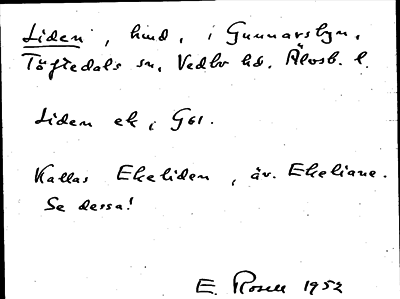 Liden, hmd, i Gunnarsbyn,
Töftedals sn, Vedbo hd, Älvsb. l.
Liden ek i G61.
Kallas Ekeliden, äv. Ekeliane.
Se dessa!
E. Rosell 1952